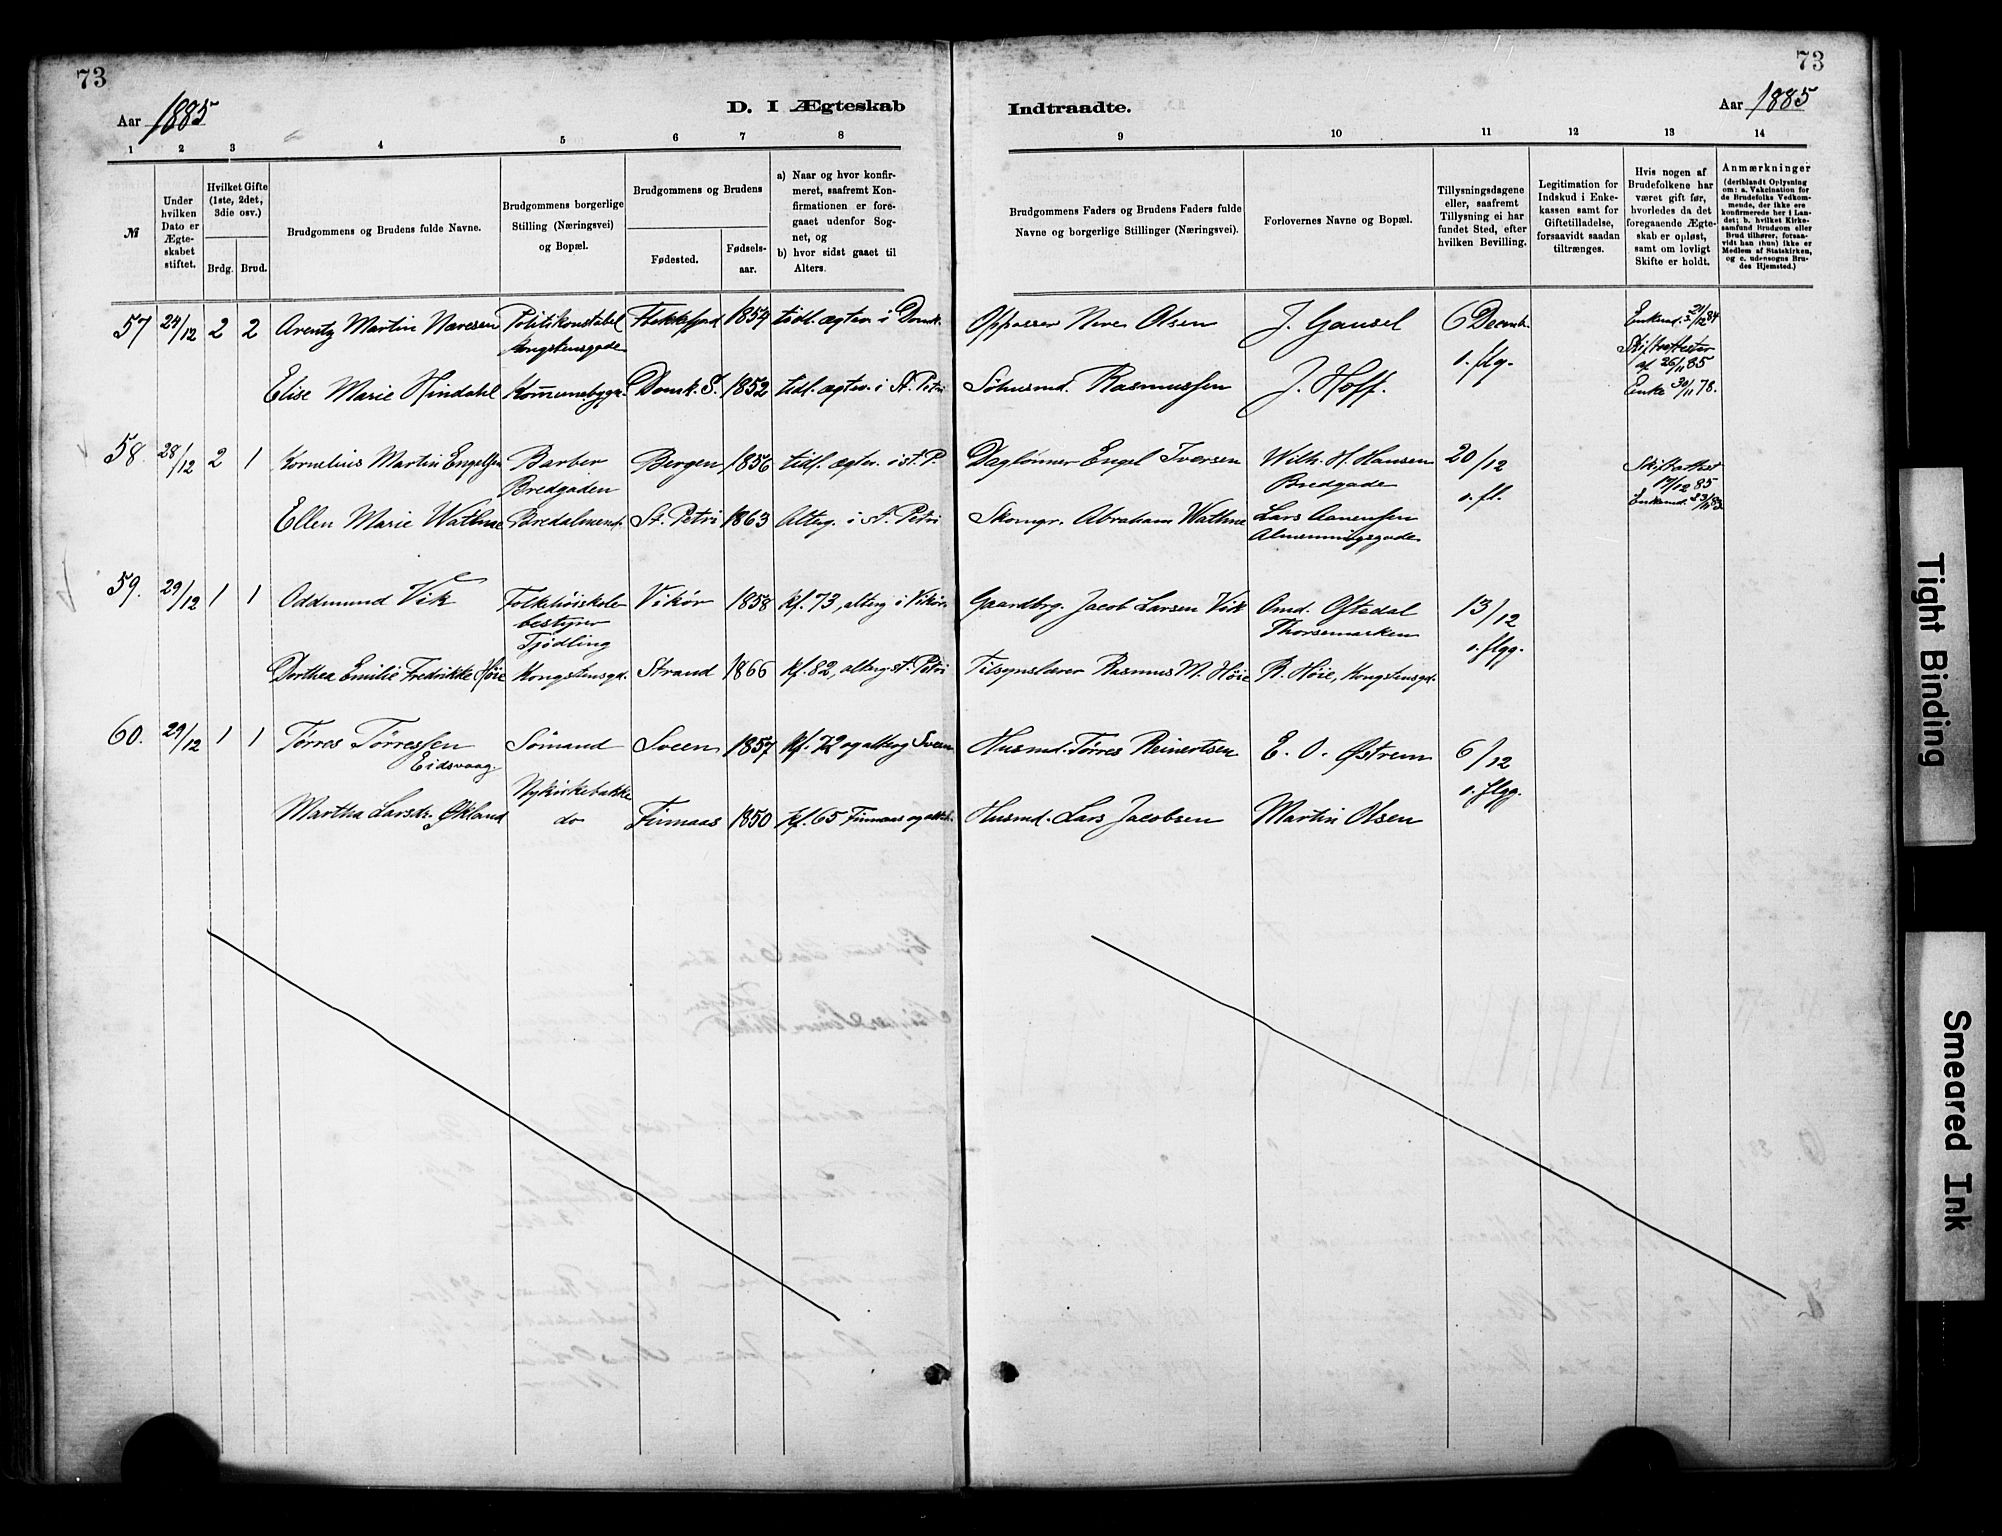 73
73
Aar 1885
D. I Ægteskab
Indtraadte.
Aar 1885
1 2 3 4 5 6 7 8
9 10 11 12 13 14
№
Under hvilken Dato er Ægteskabet stiftet.
Hvilket Gifte (1ste, 2det, 3die osv.)
Brdg. Brud.
Brudgommens og Brudens fulde Navne.
Brudgommens borgerlige Stilling (Næringsvei) og Bopæl.
Brudgommens og Brudens
Fødested.
Fødselsaar.
a) Naar og hvor konfirmeret, saafremt Konfirmationen er foregaaet udenfor Sognet, og
b) hvor sidst gaaet til Alters.
Brudgommens Faders og Brudens Faders fulde Navne og borgerlige Stillinger (Næringsvei).
Forlovernes Navne og Bopæl.
Tillysningsdagene eller, saafremt Tillysning ei har fundet Sted, efter hvilken Bevilling.
Legitimation for Indskud i Enkekassen samt for Giftetilladelse, forsaavidt saadan tiltrænges.
Hvis nogen af Brudefolkene har været gift før, hvorledes da det foregaaende Ægteskab er opløst, samt om lovligt Skifte er holdt.
Anmærkninger (deriblandt Oplysning om: a. Vakcination for de Brudefolks Vedkommende, der ikke ere konfirmerede her i Landet; b. hvilket Kirkesamfund Brudgom eller Brud tilhører, forsaavidt han (hun) ikke er Medlem af Statskirken, og c. udensogns Brudes Hjemsted.)
57 24/12 2 2 Arentz Martin Næresen Politikonstabel Flekkefjord 1854 tidl. ægtev. i Domk. Oppasser Nere Olsen J. Gausel 6 Decemb. Enkemd. 21/12 84
Kongstensgade o. flg. Skifteattester af 26/11 85
Elise Marie Hindahl Kommunebygn. Domk. S. 1852 tidl. ægtev. i St. Petri Sohusmd. Rasmussen J. Hoff. Enke 30/11 78.
58. 28/12 2 1 Kornelius Martin Engelsen Barber Bergen 1856 tidl. ægtev. i st. P. Daglønner Engel Iversen Wilh. H. Hansen 20/12 Skifteattest 17/12 85
Bredgaden Bredgade o. fl. Enkemd.
Ellen Marie Wathne Bredalmend. St. Petri 1863 Alterg. i St. Petri Skomgr. Abraham Wathne Lars Aanensen
Almenningsgade
59. 29/12 1 1 Oddmund Vik Folkehøiskole- Vikør 1858 kf. 73, alterg i Vikør. Gaardbrg. Jacob Larsen Vik Omd. Oftedal 13/12
bestyrer Thorsemarken
Tjødling o. flgg.
Dorthea Emilie Fredrikke Høie Kongstensgd. Strand 1866 kf. 82, alterg. st. Petri Tilsynslærer Rasmus M. Høie R. Høie, Kongstensgd.
60. 29/12 1 1 Tørres Tørressen Sømand Sveen 1857 kf. 72 og alterg Sveen Husmd. Tørres Reinertsen E. O. Østrem 6/12
Eidsvaag. Nykirkebakke o. flgg.
Martha Larsdr. Økland do Finnaas 1850 kf. 65 Finnaas og alterg. Husmd. Lars Jacobsen Martin Olsen
Tight Binding
Smeared Ink